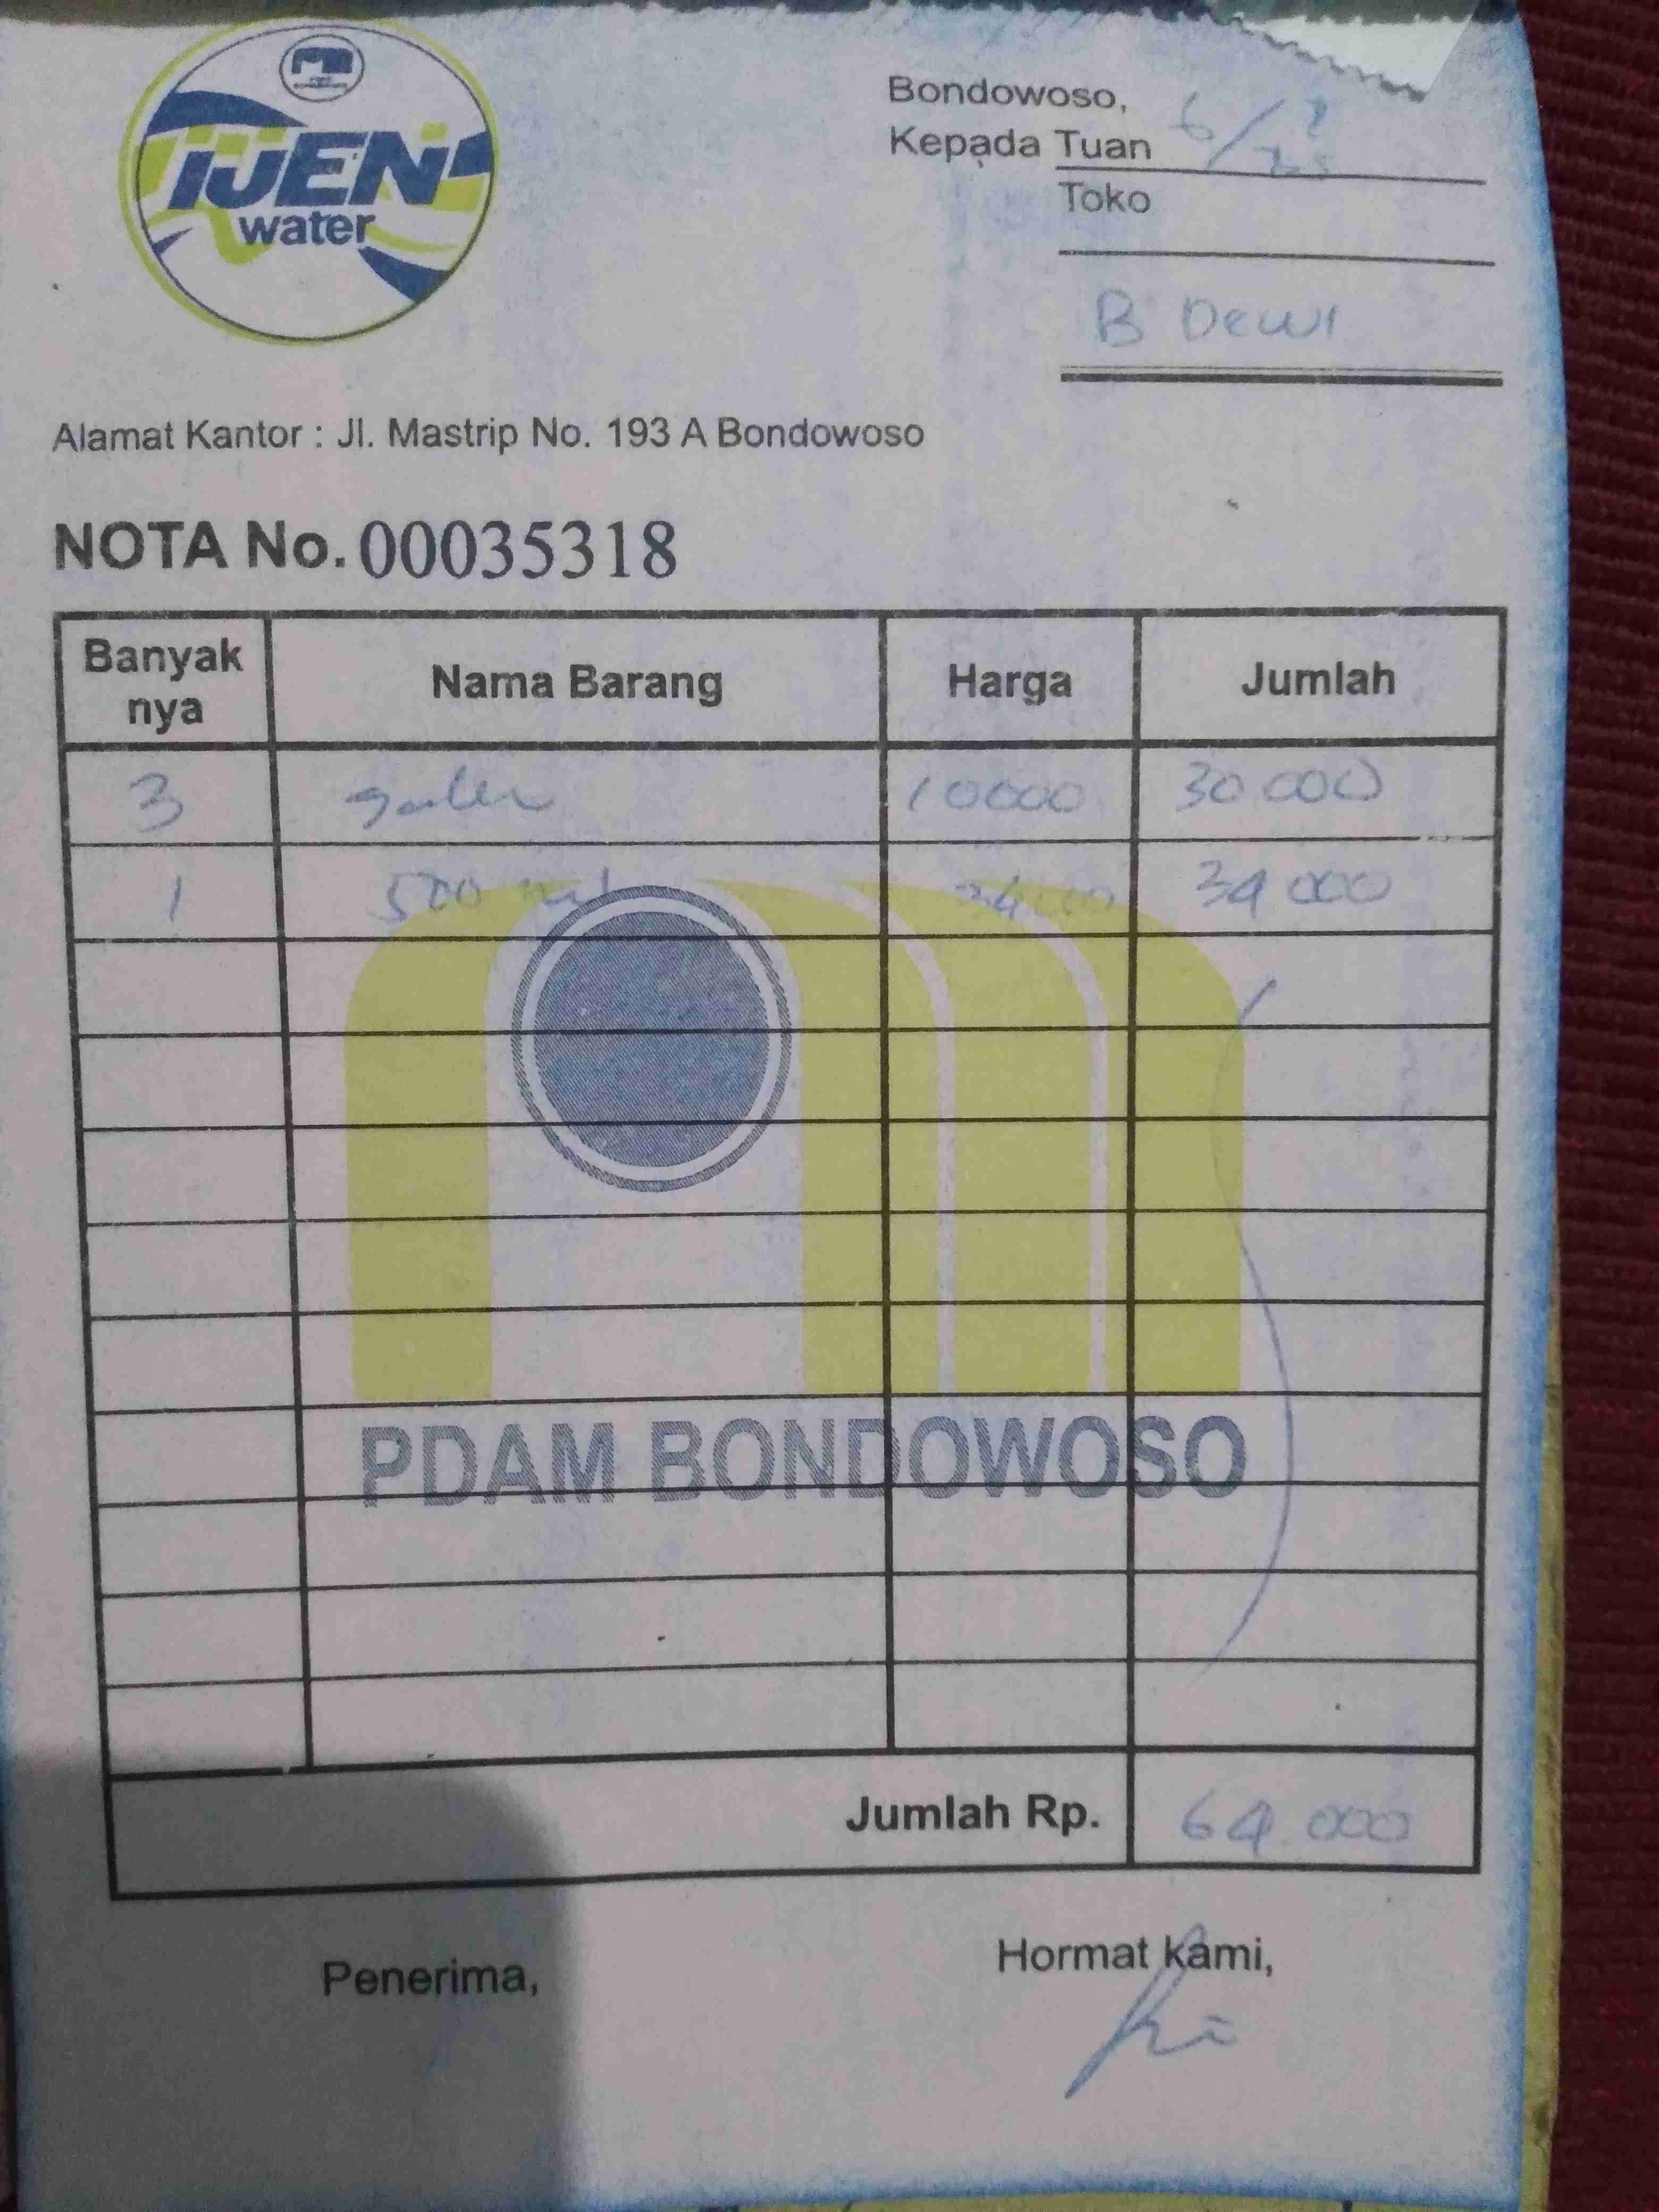 IJEN
water
Bondowoso,
Kepada Tuan
6/
Toko
B Dewi
Alamat Kantor : Jl. Mastrip No. 193 A Bondowoso
NOTA No. 00035318
Banyak nya Nama Barang Harga Jumlah
3 galon 10000 30 000
1 500 ml 34000 34 000
PDAM BONDOWOSO
Jumlah Rp. 64.000
Penerima,
Hormat kami,